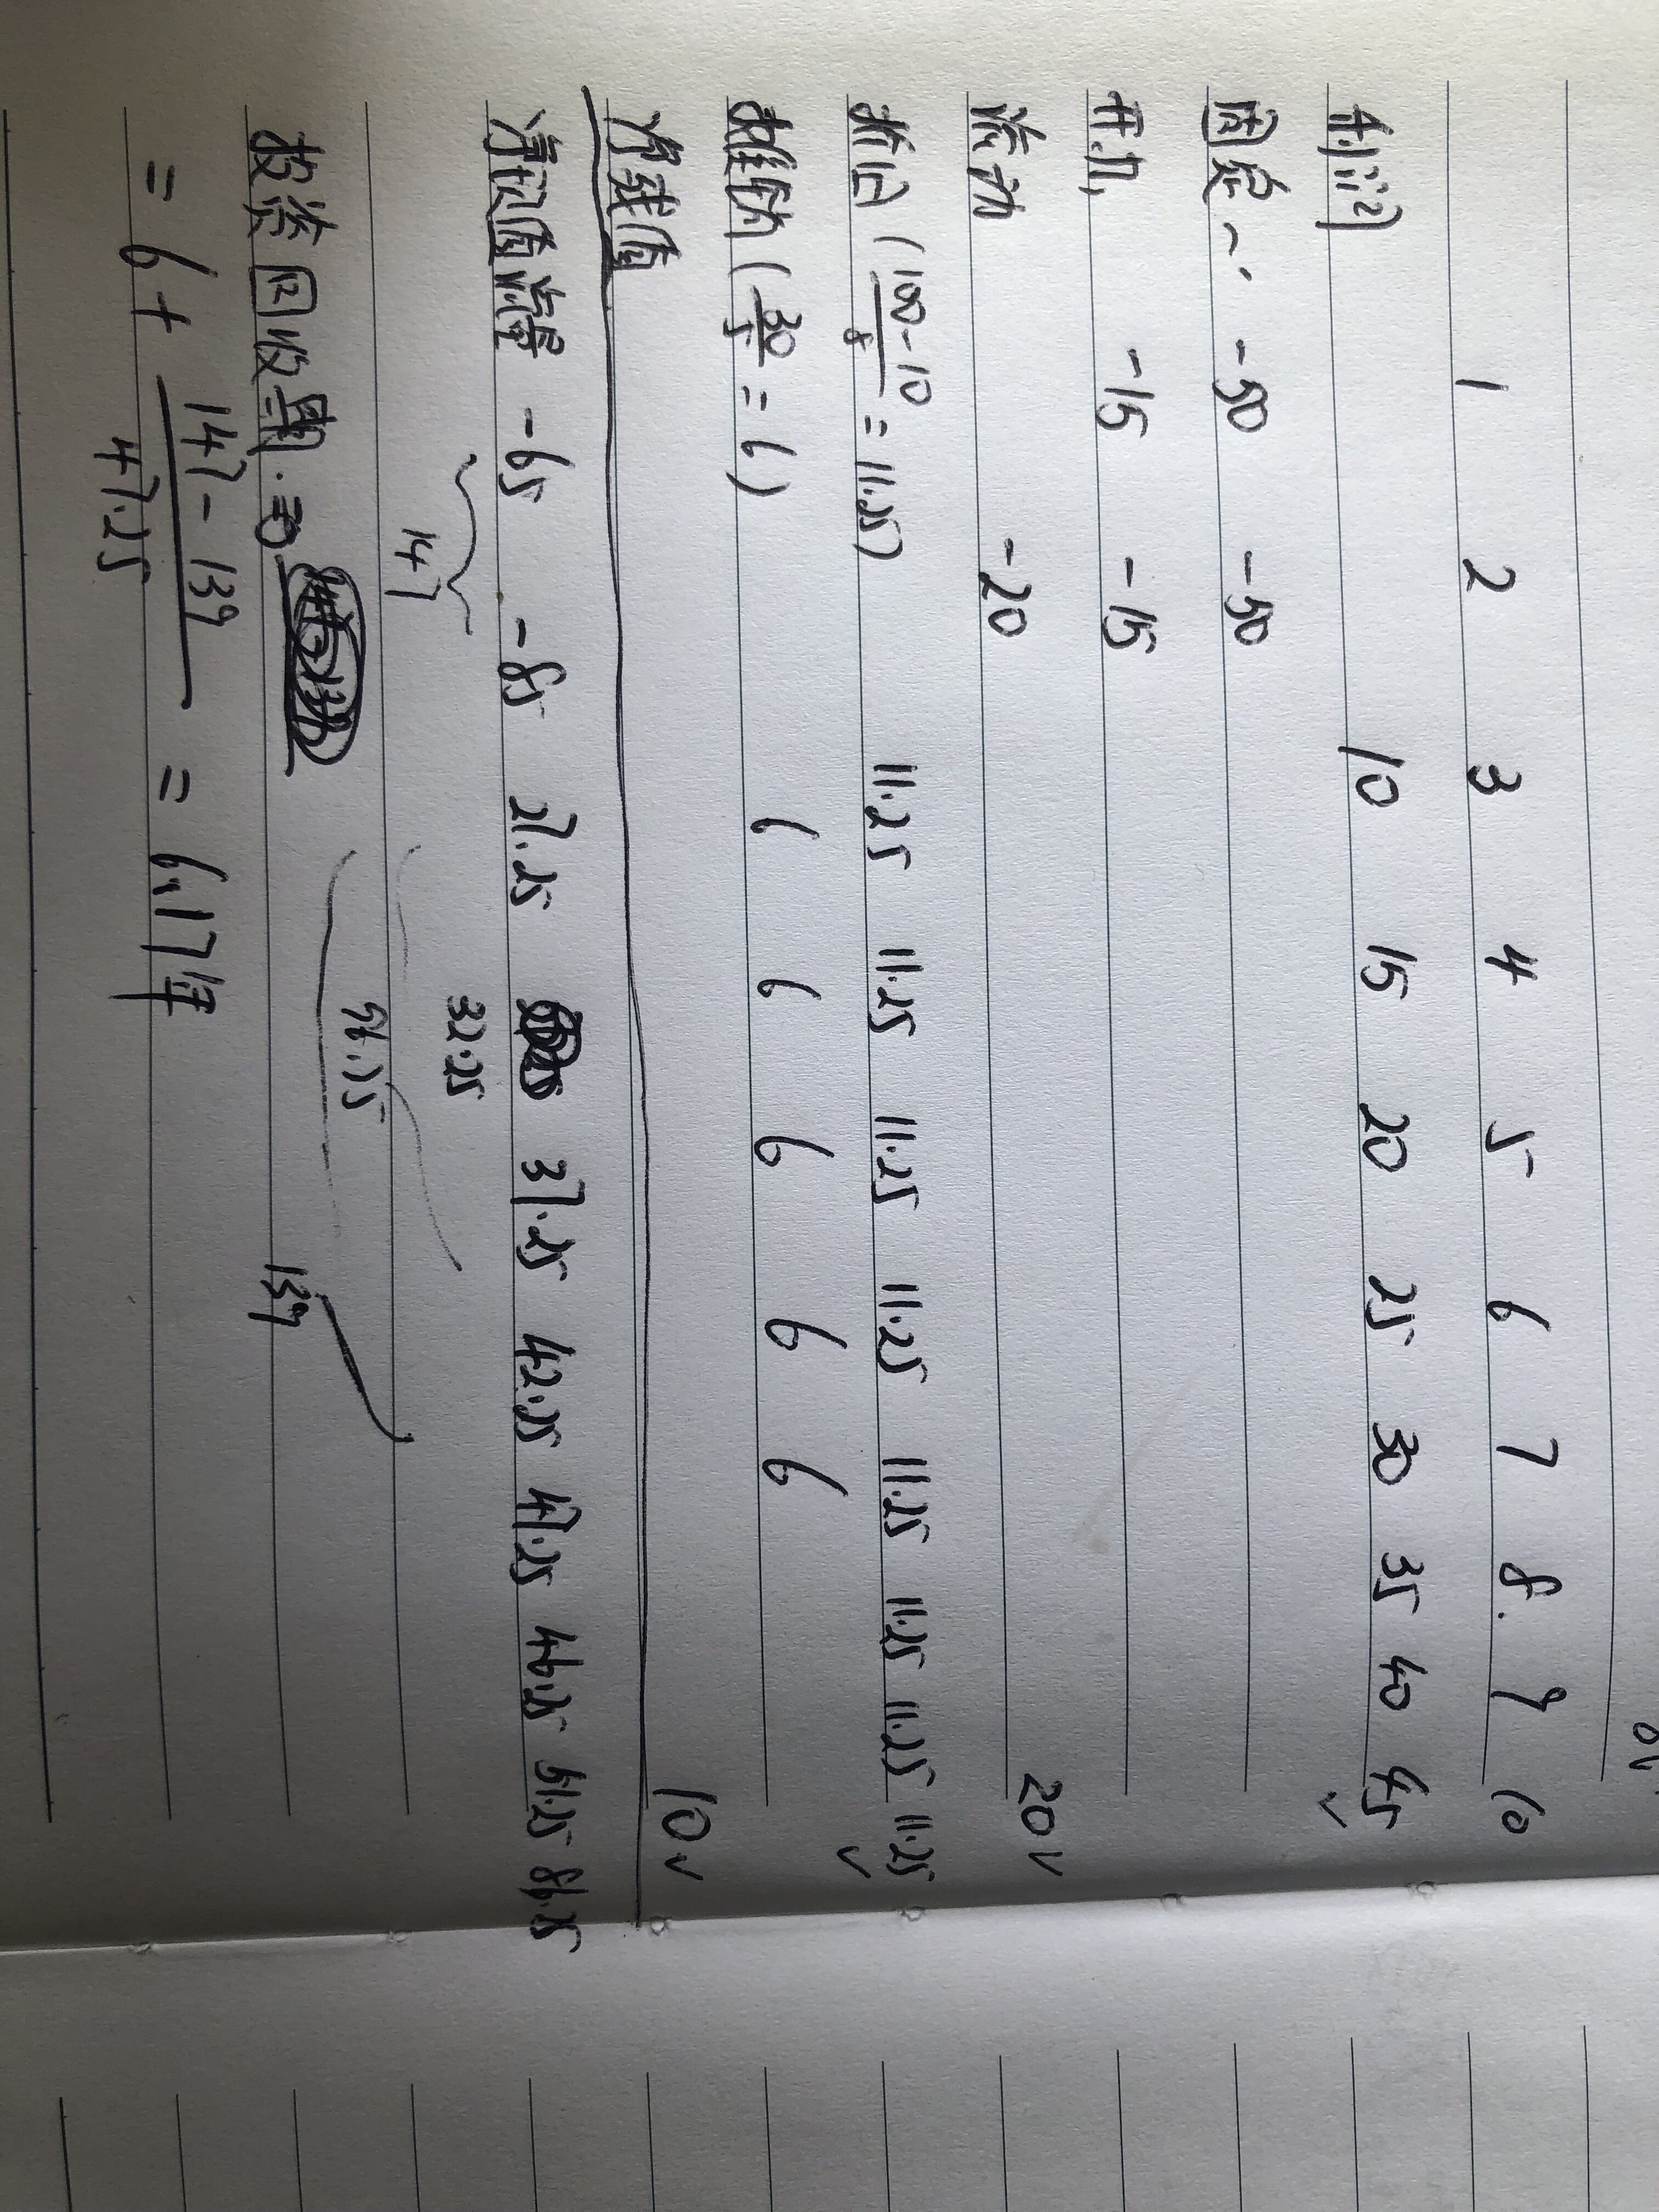 1 2 3 4 5 6 7 8. 9 10
利润 10 15 20 25 30 35 40 45 ✓
固定 -50 -50
开办 -15 -15
流动 -20 20 ✓
折旧 (100-10/8 = 11.25) 11.25 11.25 11.25 11.25 11.25 11.25 11.25 11.25 ✓
摊销 (30/5 = 6) 6 6 6 6 6
净残值 10 ✓
净现值流量 -65 -85 27.25 37.25 42.25 47.25 46.25 51.25 86.25
32.25
147
96.75
139
投资回收期.
= 6 + 147-139/47.25 = 6.17年